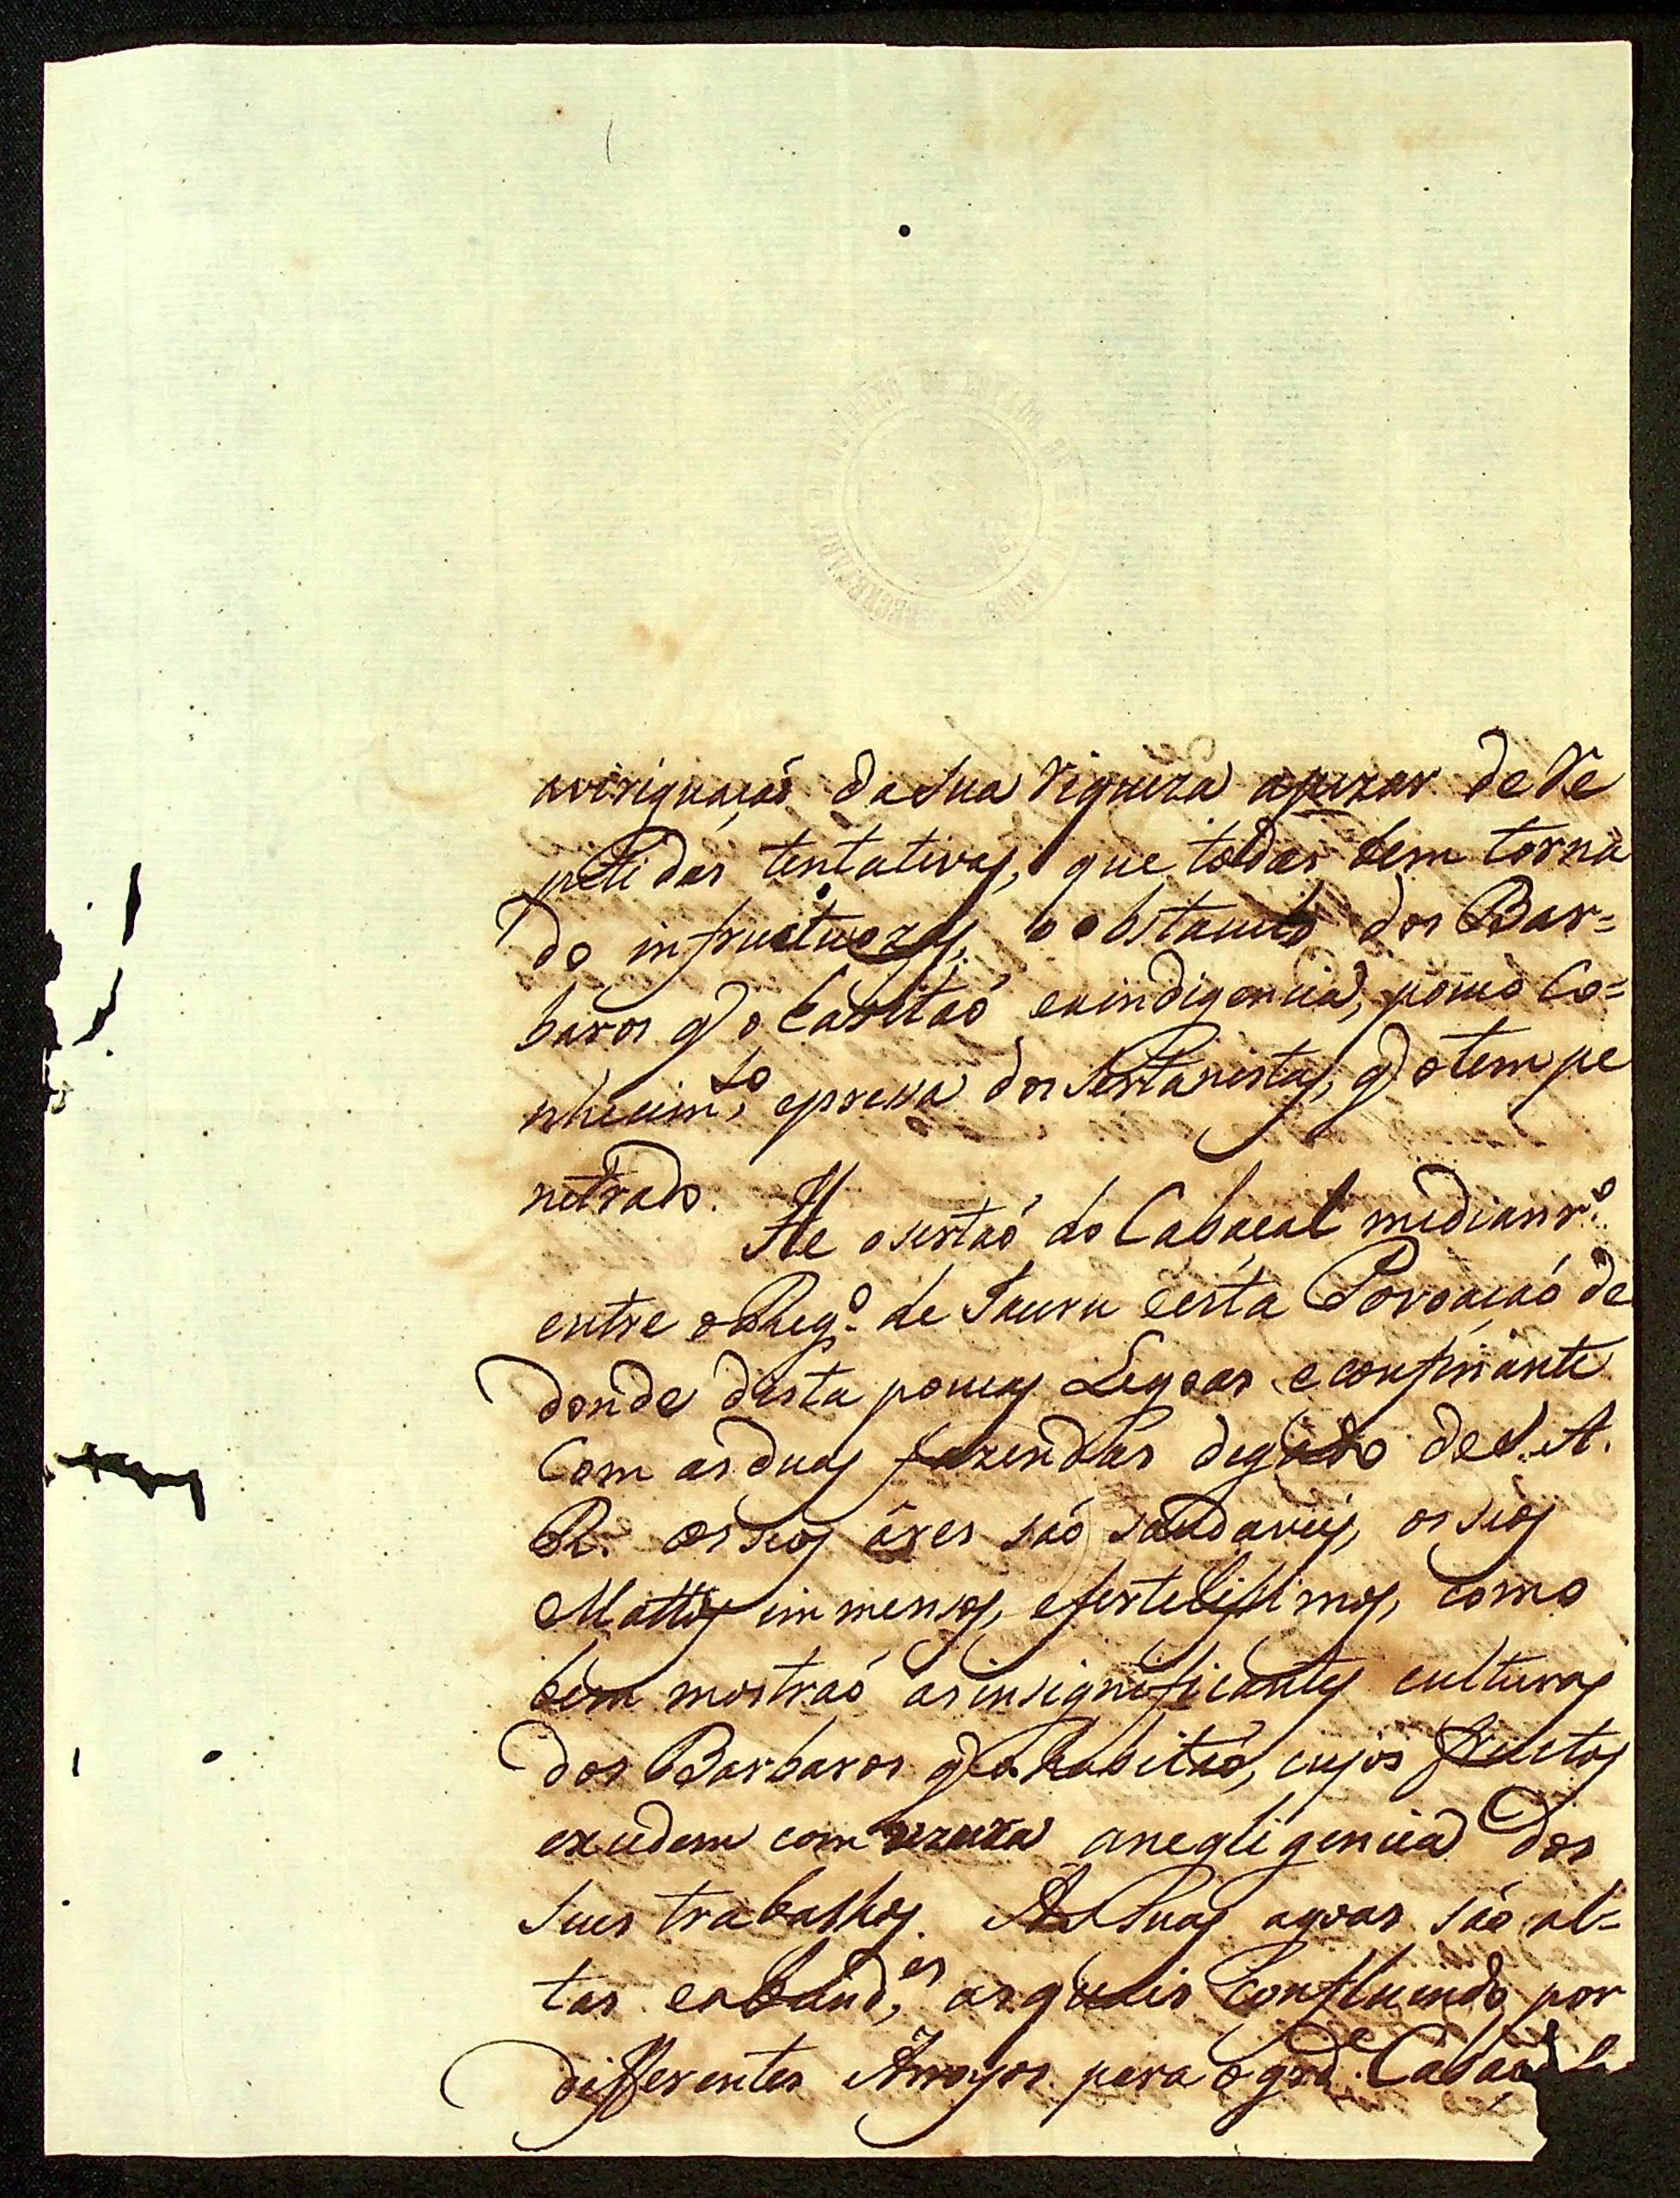 averiguaçaõ da sua riqueza apezar de re
petidas tentativas, que todas tem torna
do infructuozas, o obstaculo dos Bar=
baros q̃ o habitaõ e a indigencia, pouco Co=
nhecim.to, e pressa dos Sertanistas, q̃ o tem pe
netrado.
He o sertaõ do Cabaçal medianr.o
entre o Reg.o de Jauru e esta Povoaçaõ de
donde dista poucas Legoas e confinante
Com as duas fazendas de gado de S. A.
R. os seos áres saõ saudaveis, os seos
Mattos immensos, e fertelissimos, como
bem mostraõ as insignificantes culturas
dos Barbaros q̃ o habitaõ, cujos fructos
excedem com uzura a negligencia dos
seus trabalhos. As suas agoas saõ al=
tas e abund.es, as quais confluindo por
differentes Arroyos para o gr.de Cabaçal